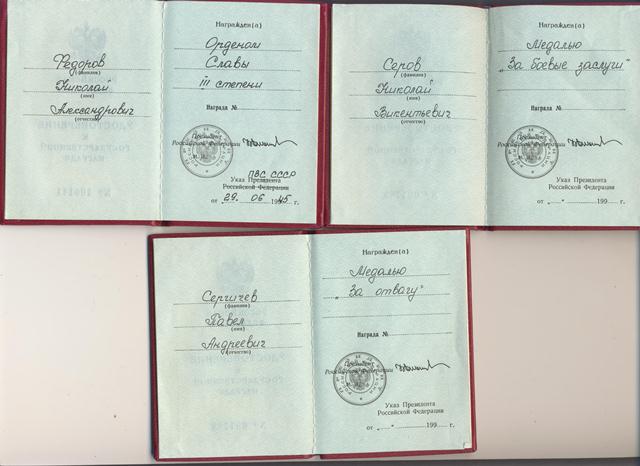 Федоров
(фамилия)
Николай
(имя)
Александрович
(отчество)
Награжден(а)
Орденом
Славы
III степени
Награда №
Президент
Российской Федерации
ПВС СССР
Указ Президента
Российской Федерации
от 29. 06 1945 г.
Серов
(фамилия)
Николай
(имя)
Викентьевич
(отчество)
Награжден(а)
Медалью
„За боевые заслуги"
Награда №
Президент
Российской Федерации
Указ Президента
Российской Федерации
от „ " 199 г.
Сергичев
(фамилия)
Павел
(имя)
Андреевич
(отчество)
Награжден(а)
Медалью
„За отвагу"
Награда №
Президент
Российской Федерации
Указ Президента
Российской Федерации
от „ " 199 г.